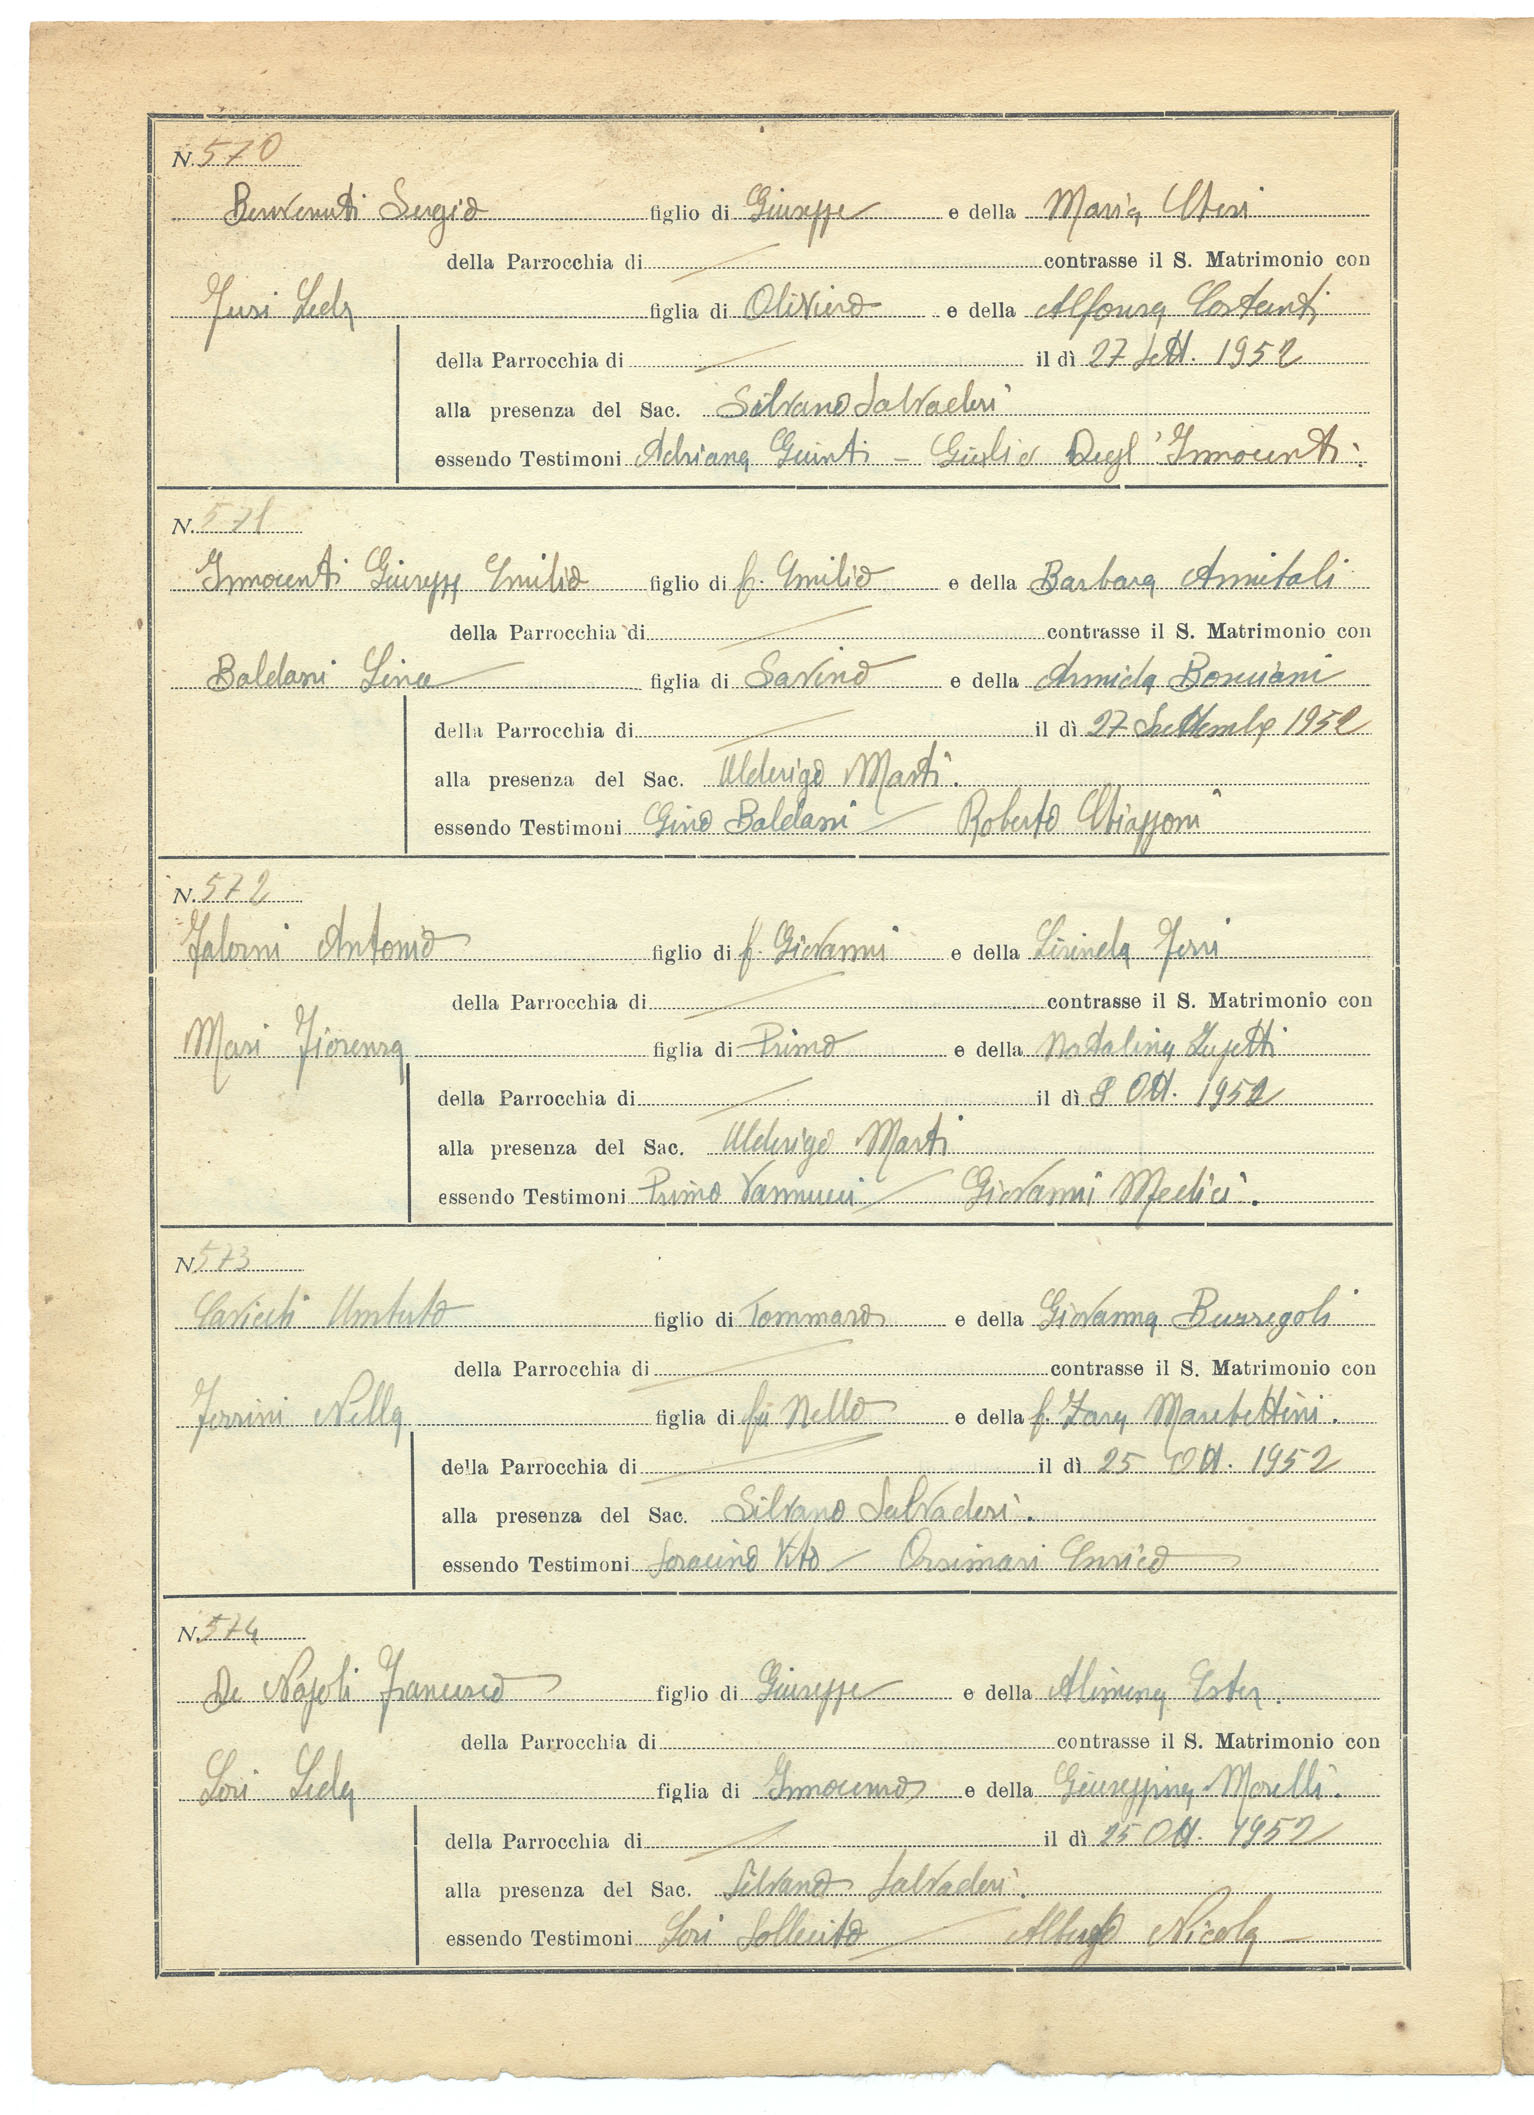 N. 570
Benvenuti Sergio figlio di Giuseppe e della Maria
della Parrocchia di contrasse il S. Matrimonio con
Fusi Leda figlia di Oliviero e della Alfonsa Costanti
della Parrocchia di il dì 27 Sett. 1952
alla presenza del Sac. Silvano Salvadori
essendo Testimoni Adriana Giunti - Giulio Degl'Innocenti.
N. 571
Innocenti Giuseppe Emilio figlio di f. Emilio e della Barbara
della Parrocchia di contrasse il S. Matrimonio con
Baldassi Lina figlia di Savino e della Armida Bonciani
della Parrocchia di il dì 27 Settembre 1952
alla presenza del Sac. Alderigo Marti.
essendo Testimoni Gino Baldassi Roberto Chiapponi
N. 572
Falorni Antonio figlio di f. Giovanni e della
della Parrocchia di contrasse il S. Matrimonio con
Masi Fiorenza figlia di Primo e della Natalina
della Parrocchia di il dì 8 Ott. 1952
alla presenza del Sac. Alderigo Marti
essendo Testimoni Primo Vannucci Giovanni Medici.
N. 573
Umberto figlio di Tommaso e della Giovanna Buzzegoli
della Parrocchia di contrasse il S. Matrimonio con
Ferrini Nella figlia di fu Nello e della f. Zara Marchettini.
della Parrocchia di il dì 25 Ott. 1952
alla presenza del Sac. Silvano Salvadori.
essendo Testimoni Saracino Vito Orsimari Enrico
N. 574
De Napoli Francesco figlio di Giuseppe e della Alimena Ester.
della Parrocchia di contrasse il S. Matrimonio con
Lori Leda figlia di Innocenzo e della Giuseppina Morelli.
della Parrocchia di il dì 25 Ott. 1952
alla presenza del Sac. Silvano Salvadori.
essendo Testimoni Lori Sollecito Nicola